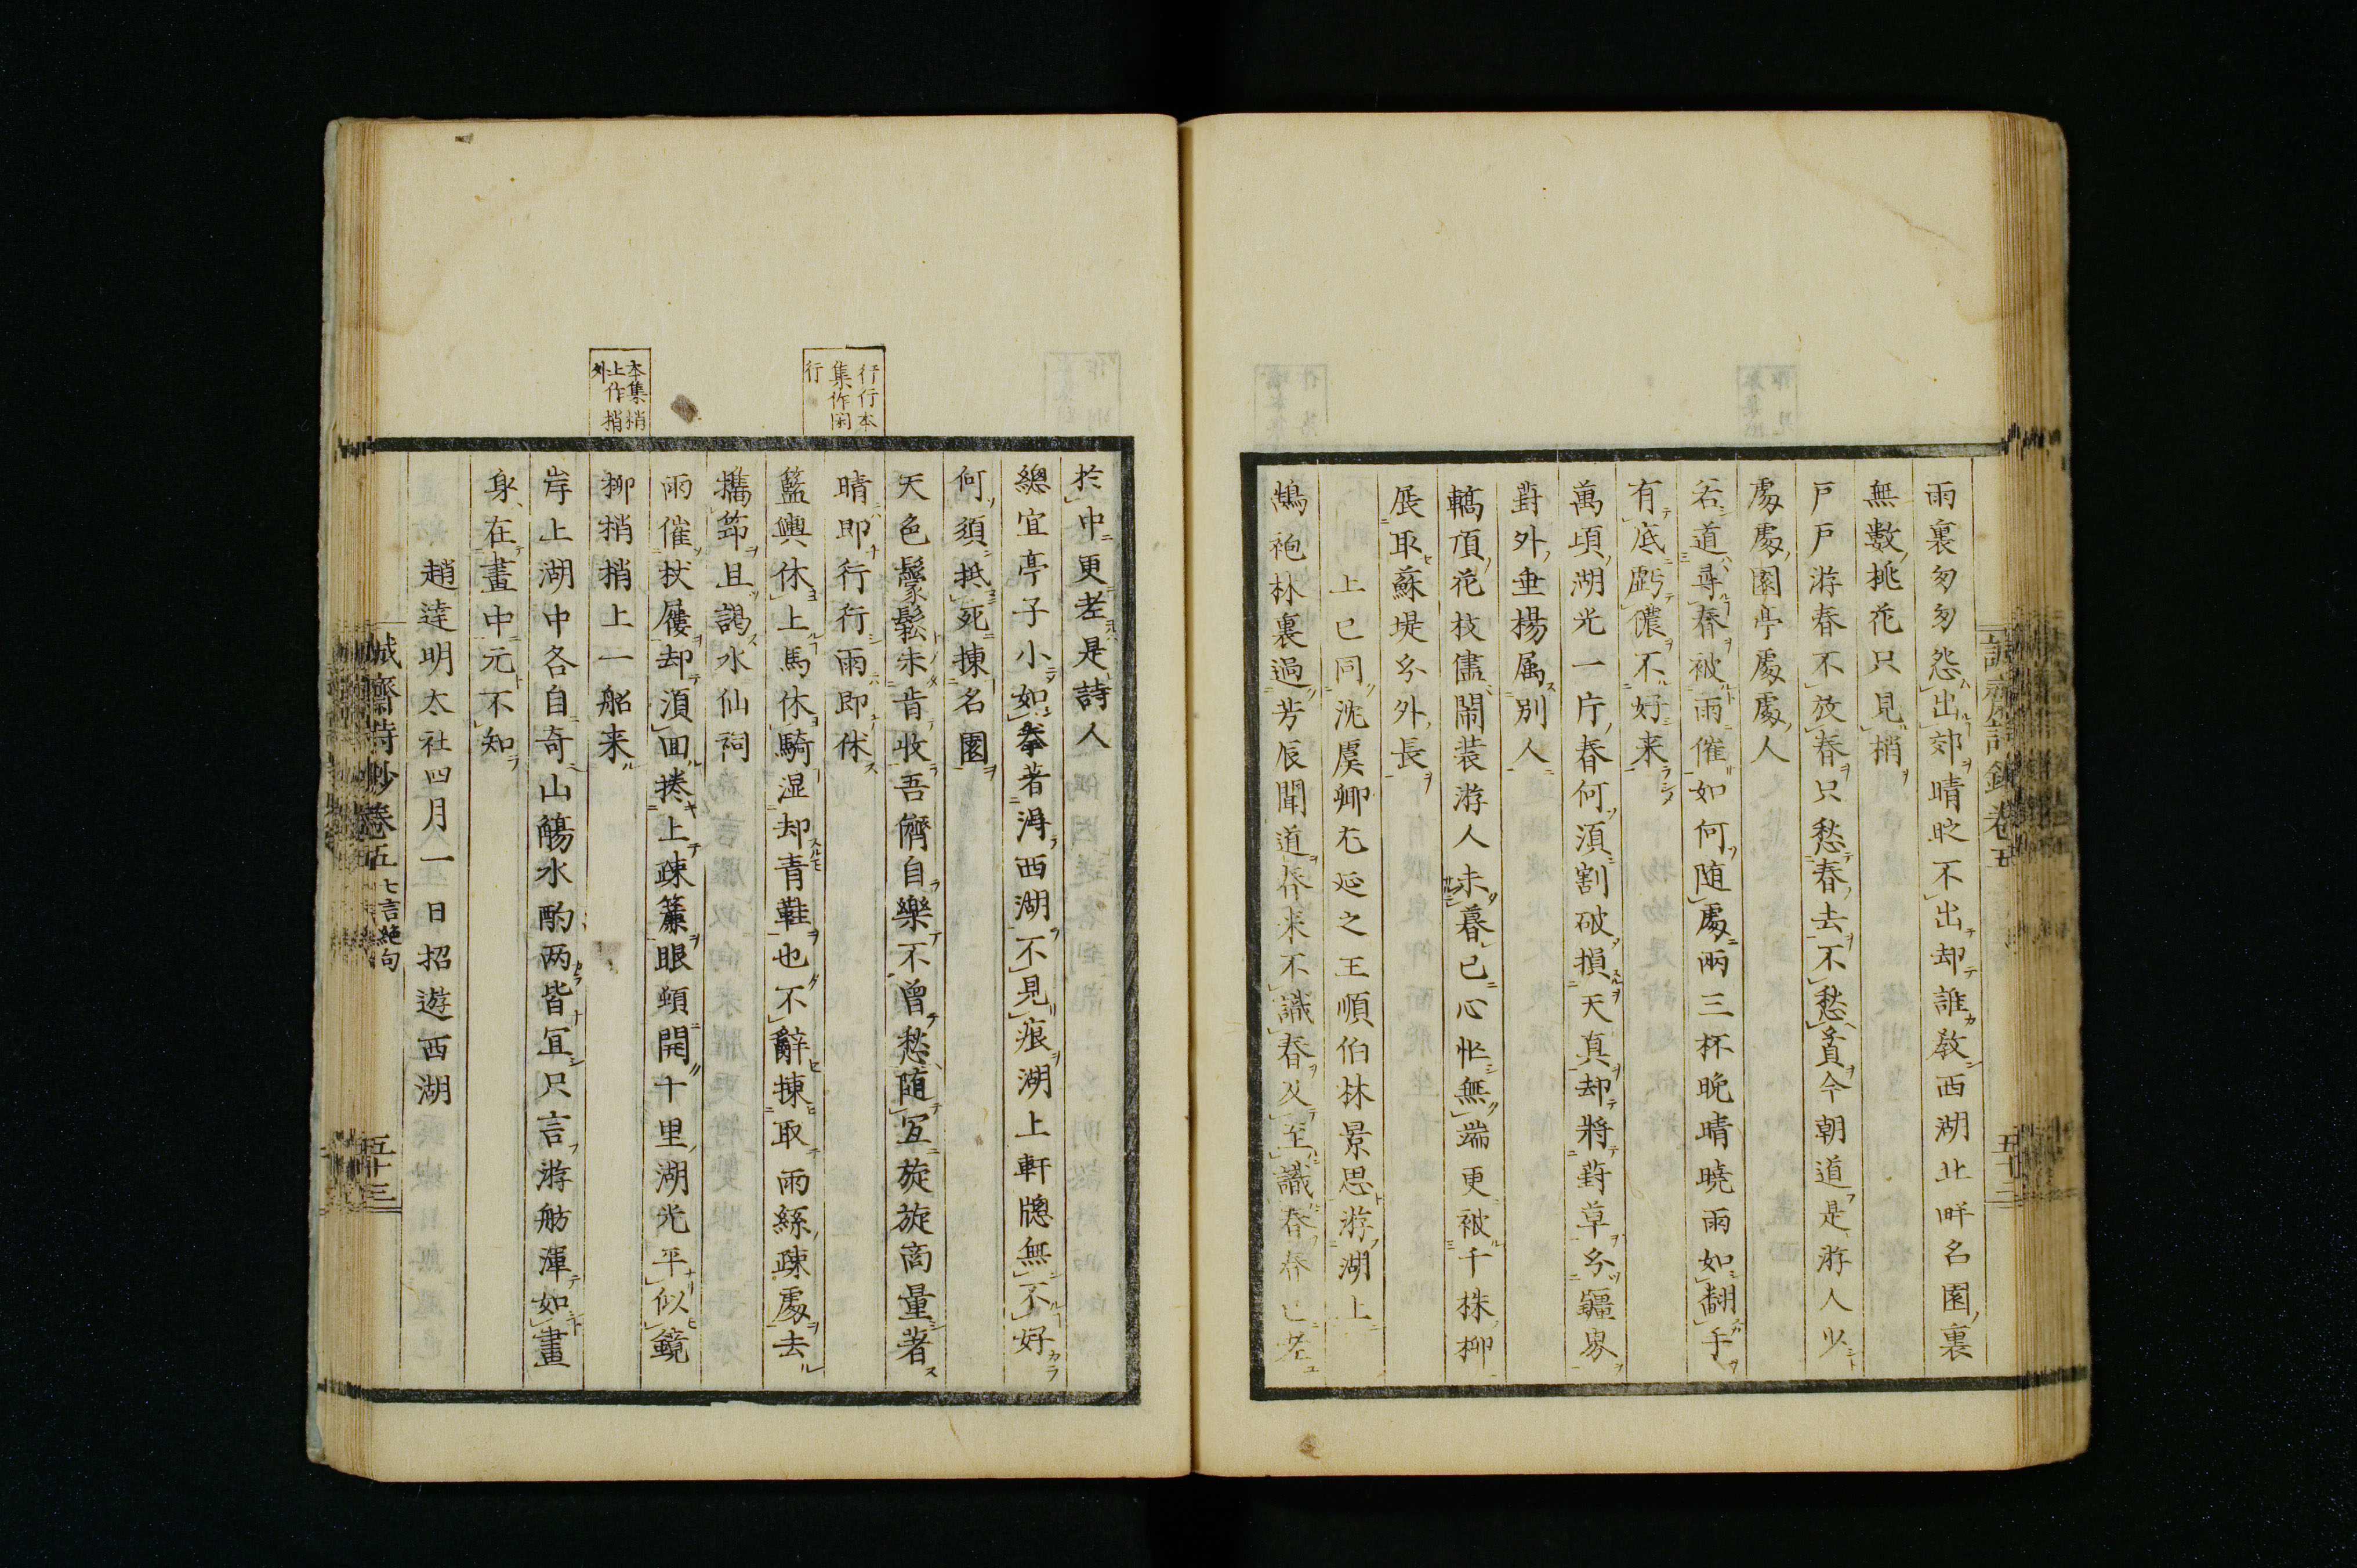 雨裏匆匆怨出郊晴時不出却誰教西湖北畔名園裏
無數桃花只見梢
戸戸游春不放春只愁春去不愁貧今朝道是游人少
處處園亭處處人
各道尋春被雨催如何随處兩三杯晩晴曉雨如翻手
有底虧儂不好来
萬頃湖光一片春何湏割破損天真却將葑草分疆界
葑外垂楊属別人
轎頂花枝儘鬧装游人未暮已心忙無端更被千株柳
展取蘇堤分外長
上巳同沈虞卿尤延之王順伯林景思游湖上
鵠袍林裏過芳辰聞道春来不識春及至識春春已老
於中更老是詩人
總宜亭子小如拳著得西湖不見痕湖上軒牕無不好
何須抵死揀名園
天色鬖鬆未肯收吾儕自樂不曾愁随冝旋旋商量著
晴即行行雨即休
籃輿休上馬休騎湿却青鞋也不辭揀取雨絲疎處去
攜笻且謁水仙祠
雨催扙屨却湏回捲上疎簾眼頓開十里湖光平似鏡
柳梢梢上一船来
岸上湖中各自奇山觴水酌两皆冝只言游舫渾如畫
身在畫中元不知
趙達明太社四月一日招遊西湖
行行本
集作閑
行
本集梢
上作梢
外
誠齋詩鈔卷五
五十二
誠齋詩鈔卷五 七言絶句
五十三